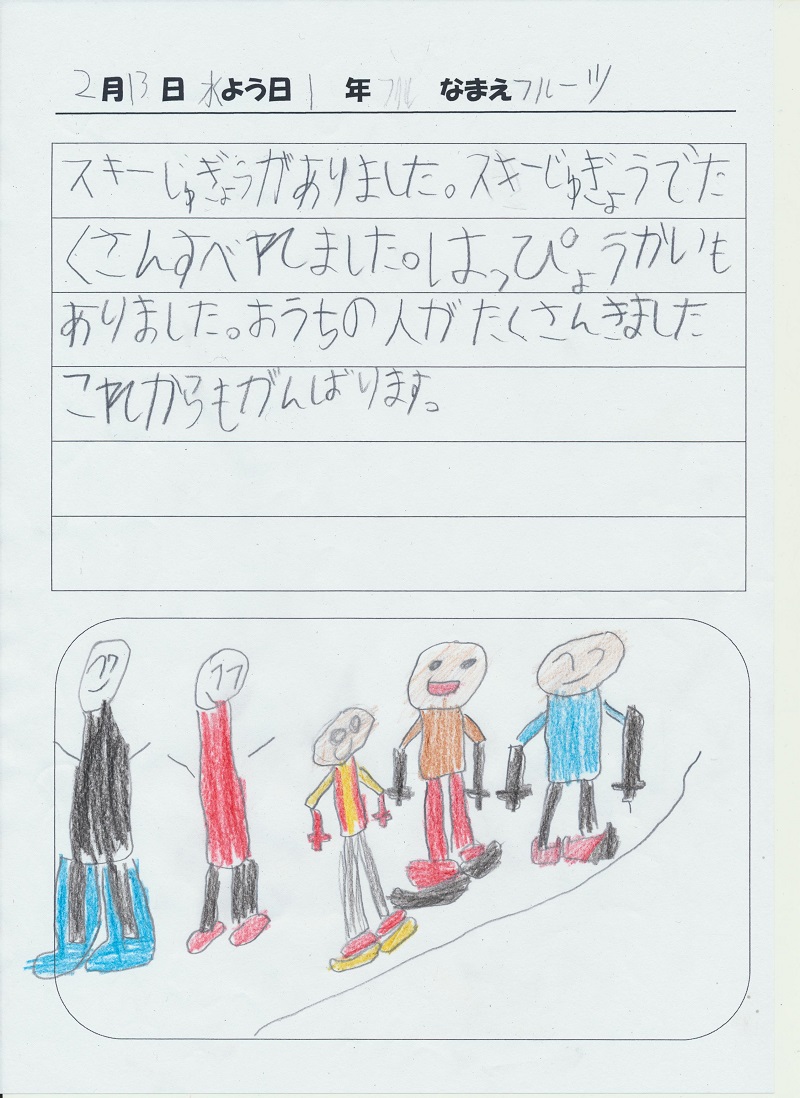 2月13日 水よう日 1年 なまえフルーツ
スキーじゅぎょうがありました。スキーじゅぎょうでた
くさんすべれました。はっぴょうかいも
ありました。おうちの人がたくさんきました
これからもがんばります。